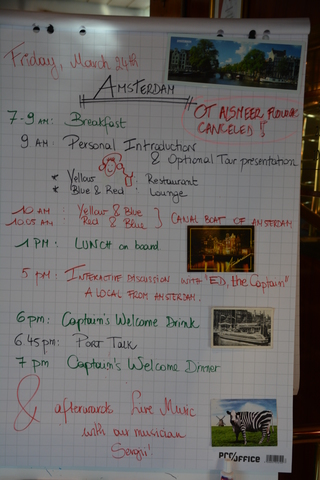 Friday, March 24th
AMSTERDAM
OT AlSMEER FLOWER
CANCELED !
7-9 AM: Breakfast
9 AM: Personal Introduction
& Optional Tour presentation
* Yellow : Restaurant
* Blue & Red : Lounge
10 AM : Yellow & Blue
10.05 AM : Red & Blue } CANAL BOAT OF AMSTERDAM
1 PM : LUNCH on board
5 pm : INTERACTIVE DISCUSSION WITH "ED, the Captain"
A LOCAL FROM AMSTERDAM.
6 pm : Captain's Welcome Drink
6.45 pm : Port Talk
7 pm Captain's Welcome Dinner
& afterwards Live Music
with our musician
Sergii!
PRO/OFFICE